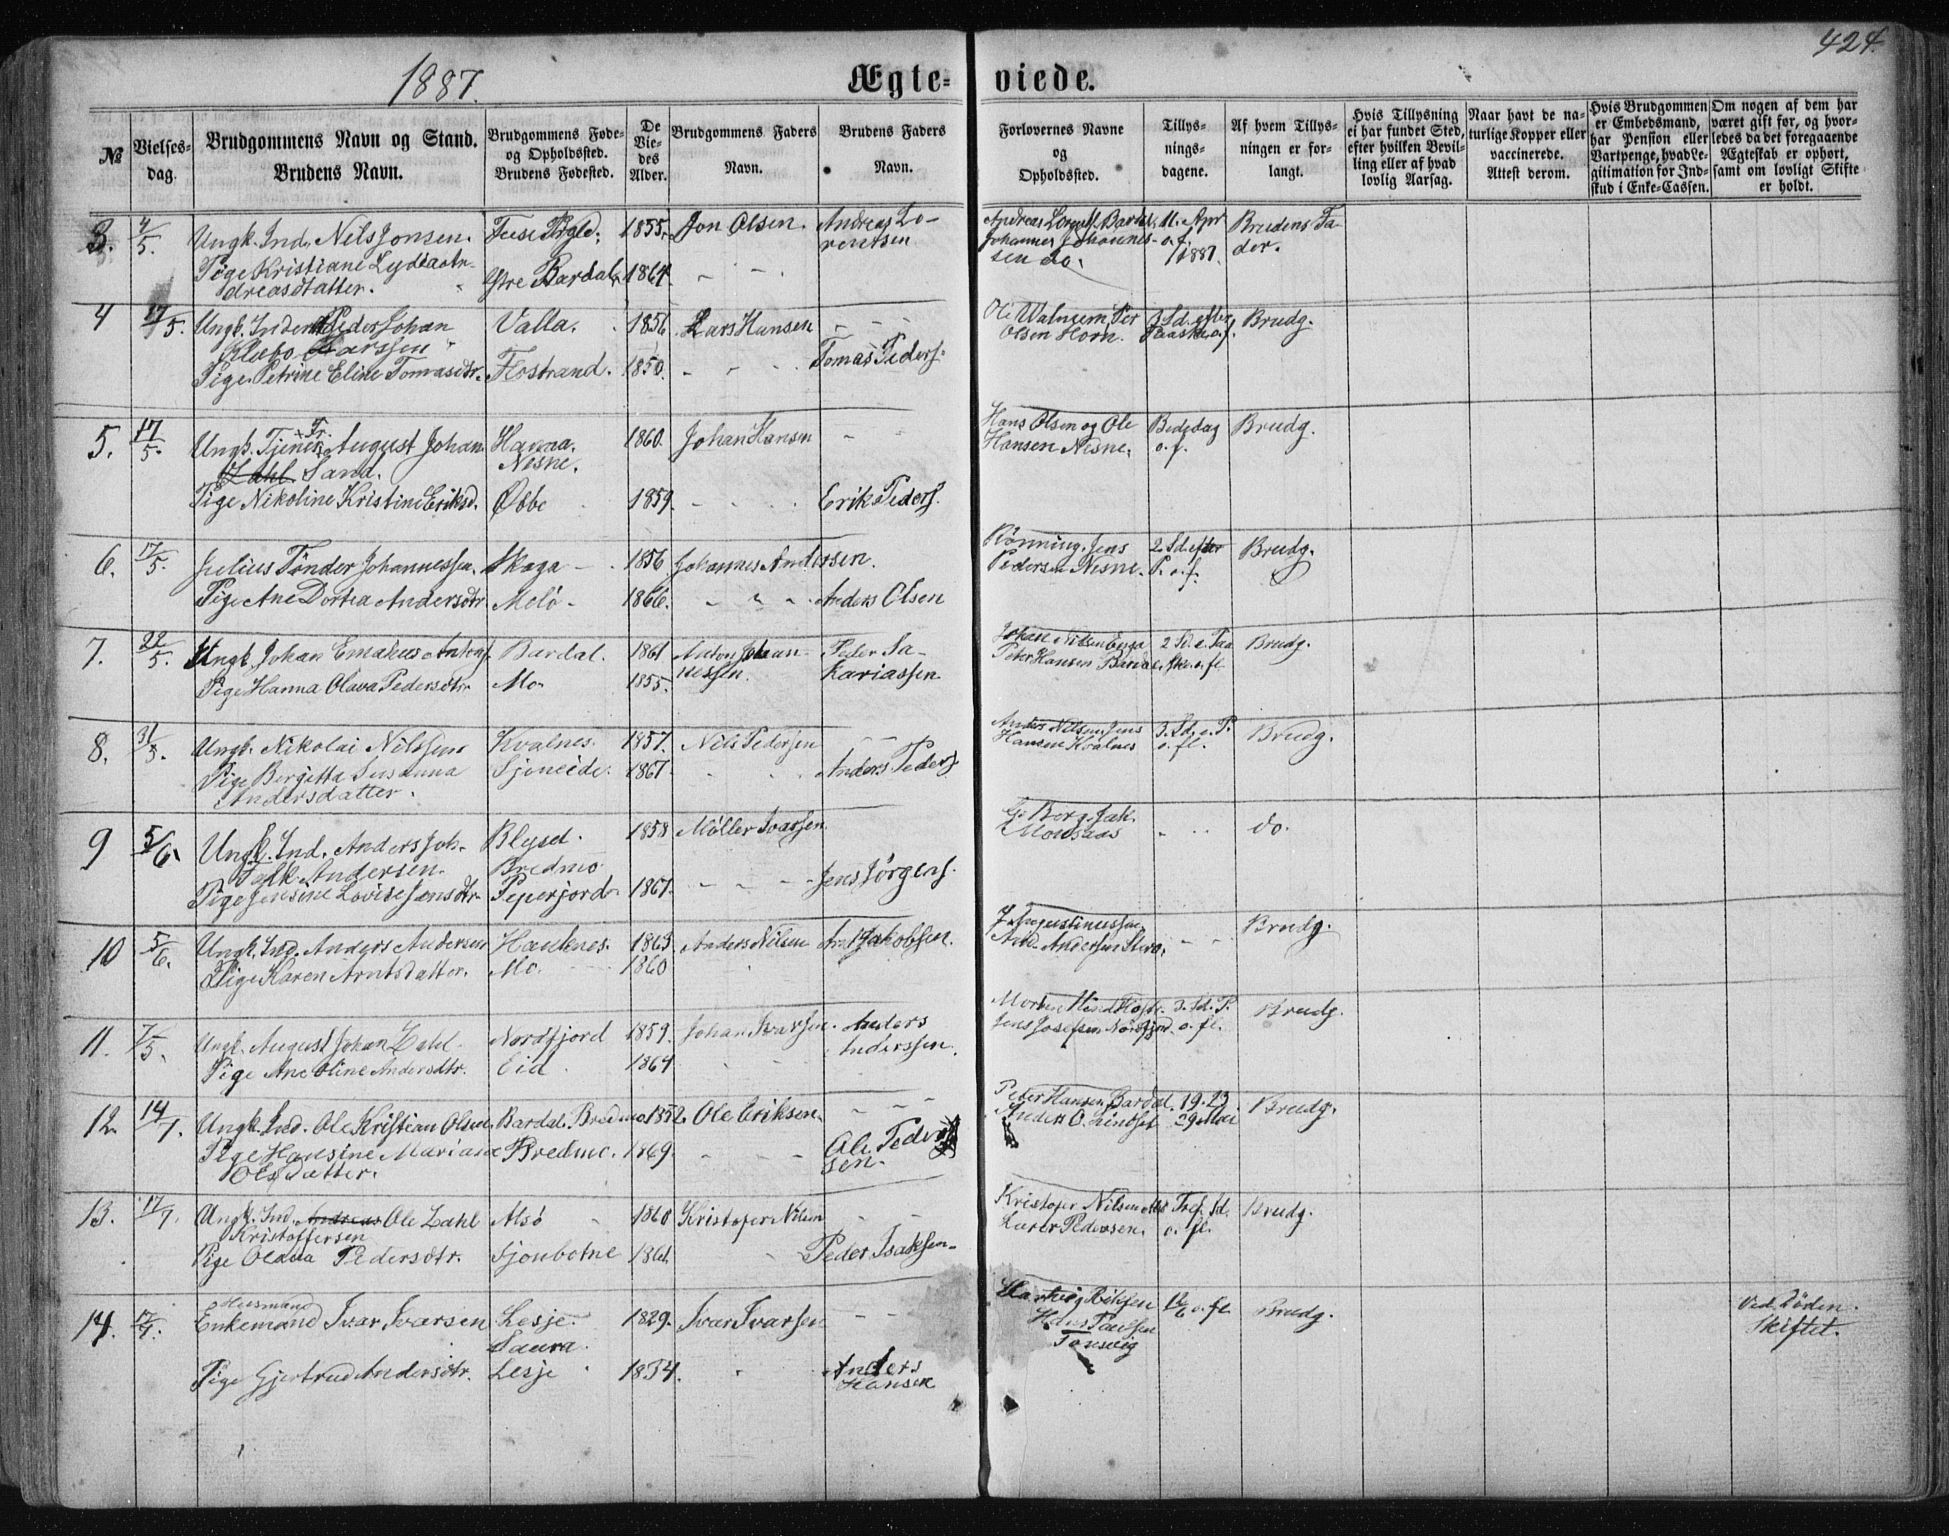 424.
1887.
Ægte-
viede.
№
Vielses-
dag.
Brudgommens Navn og Stand.
Brudens Navn.
Brudgommens Føde-
og Opholdssted.
Brudens Fødested.
De
Vie-
des
Alder.
Brudgommens Faders
Navn.
Brudens Faders
Navn.
Forlovernes Navne
og
Opholdssted.
Tillys-
nings-
dagene.
Af hvem Tillys-
ningen er for-
langt.
Hvis Tillysning
ei har fundet Sted,
efter hvilken Bevil-
ling eller af hvad
lovlig Aarsag.
Naar havt de na-
turlige Kopper eller
vaccinerede.
Attest derom.
Hvis Brudgommen
er Embedsmand,
har Pension eller
Vartpenge, hvad Le-
gitimation for Ind-
skud i Enke-Cassen.
Om nogen af dem har
været gift før, og hvor-
ledes da det foregaaende
Ægteskab er ophørt,
samt om lovligt Skifte
er holdt.
3. 4/5. Ungk. Ind. Nils Jonsen. 1855. Jon Olsen. Andreas Lo-
rentsen
Johannes Johannes-
sen do. 11. Apr
o. f.
1887. Brudens Fa-
der.
Pige Kristiane Lydia An-
dreasdatter. Øvre Bardal 1864.
4 17/5. Peder Johan
Valla. 1856. Lars Hansen
Olsen Horn. 3 Sd. efter
Paaske o. f. Brudg.
Pige Petrine Eline Tomasdtr. Flostrand. 1850. Tomas Peders.
5. 17/5. Ungk. Tjener August Johan
Sand. Havna.
Nesne. 1860. Johan Hansen
Hans Olsen og Ole
Hansen Nesne. Bededag
o. f. Brudg.
Pige Nikoline Kristine Eriksd. Øbbe 1859. Erik Peders.
6. 17/5. Julius Tønder Johannessen. Skaga 1856 Johannes Andersen.
Rønning. Jens
Pedersen Nesne. 2. Sd. efter
P. o. f. Brudg.
Pige Ane Dortea Andersdtr. Melø. 1866. Anders Olsen
7. 22/5. Ungk. Johan Emakus Antons. Bardal. 1861 Anton Johan-
nessen. Peder Sa-
kariassen
Johan Nilsen Enga
Peter Hansen Bardal. 2 Sd. e. Paa
ske. o. fl. Brudg.
Pige Hanna Olava Pedersdtr. Mo. 1855.
8. 31/5. Ungk. Nikolai Nilssen Kvalnes. 1857. Nils Pedersen
Anders Nilsen, Jens
Hansen Kvalnes 3. Sd. e. P.
o. fl. Brudg.
Pige Bergitta Susanna
Andersdatter. Sjoneide. 1867. Anders Peders
9 5/6. Ungk. Ind. Anders Joh.
Falk Andersen. 1858 Møller Ivarsen
G. Borg. Jak.
do.
Bredmo
Pige Jensine Lovise Jensdtr. 1867. Jens Jørgens.
10 5/6. Ungk. Ind. Anders Andersen Hauknes. 1863 Anders Nilsen Arnt Jakobsen.
Brudg.
Pige Karen Arntsdatter. Mo. 1860
11. 7/5. Ungk. August Johan Zahl. Nordfjord 1859. Johan Ivarsen. Anders
Anderssen.
Jens Josefsen 3. Sd. P.
o. fl. Brudg.
Pige Ane Oline Andersdtr. Eid. 1864
12. 14/7. Ungk. Ind. Ole Kristian Olsen. Bardal. Bredmo 1852. Ole Eriksen.
Peter Hansen Bardal. 19. 23
Anders O. Lindset 29 Mai Brudg.
Pige Hansine Mariane
Olsdatter. Bredmo. 1869. Ole Peder
sen.
13. 17/7. Ungk. Ind. Andreas Ole Zahl
Kristoffersen Alsø 1860 Kristofer Nilsen
Kristofer Nilsen Alsø
Pedersen. Tref. Sd.
o. fl. Brudg.
Pige Oldna Pedersdtr. Sjonbotne 1861. Peder Isaksen
14. 17/7. Husmand
Enkemand Ivar Ivarsen Lesje. 1829. Ivar Ivarsen
Hartvig
Paulsen
12/6 o. fl. Brudg. Ved Døden.
Skiftet.
Pige Gjertrud Andersdtr. Lesje 1834. Anders
Hansen